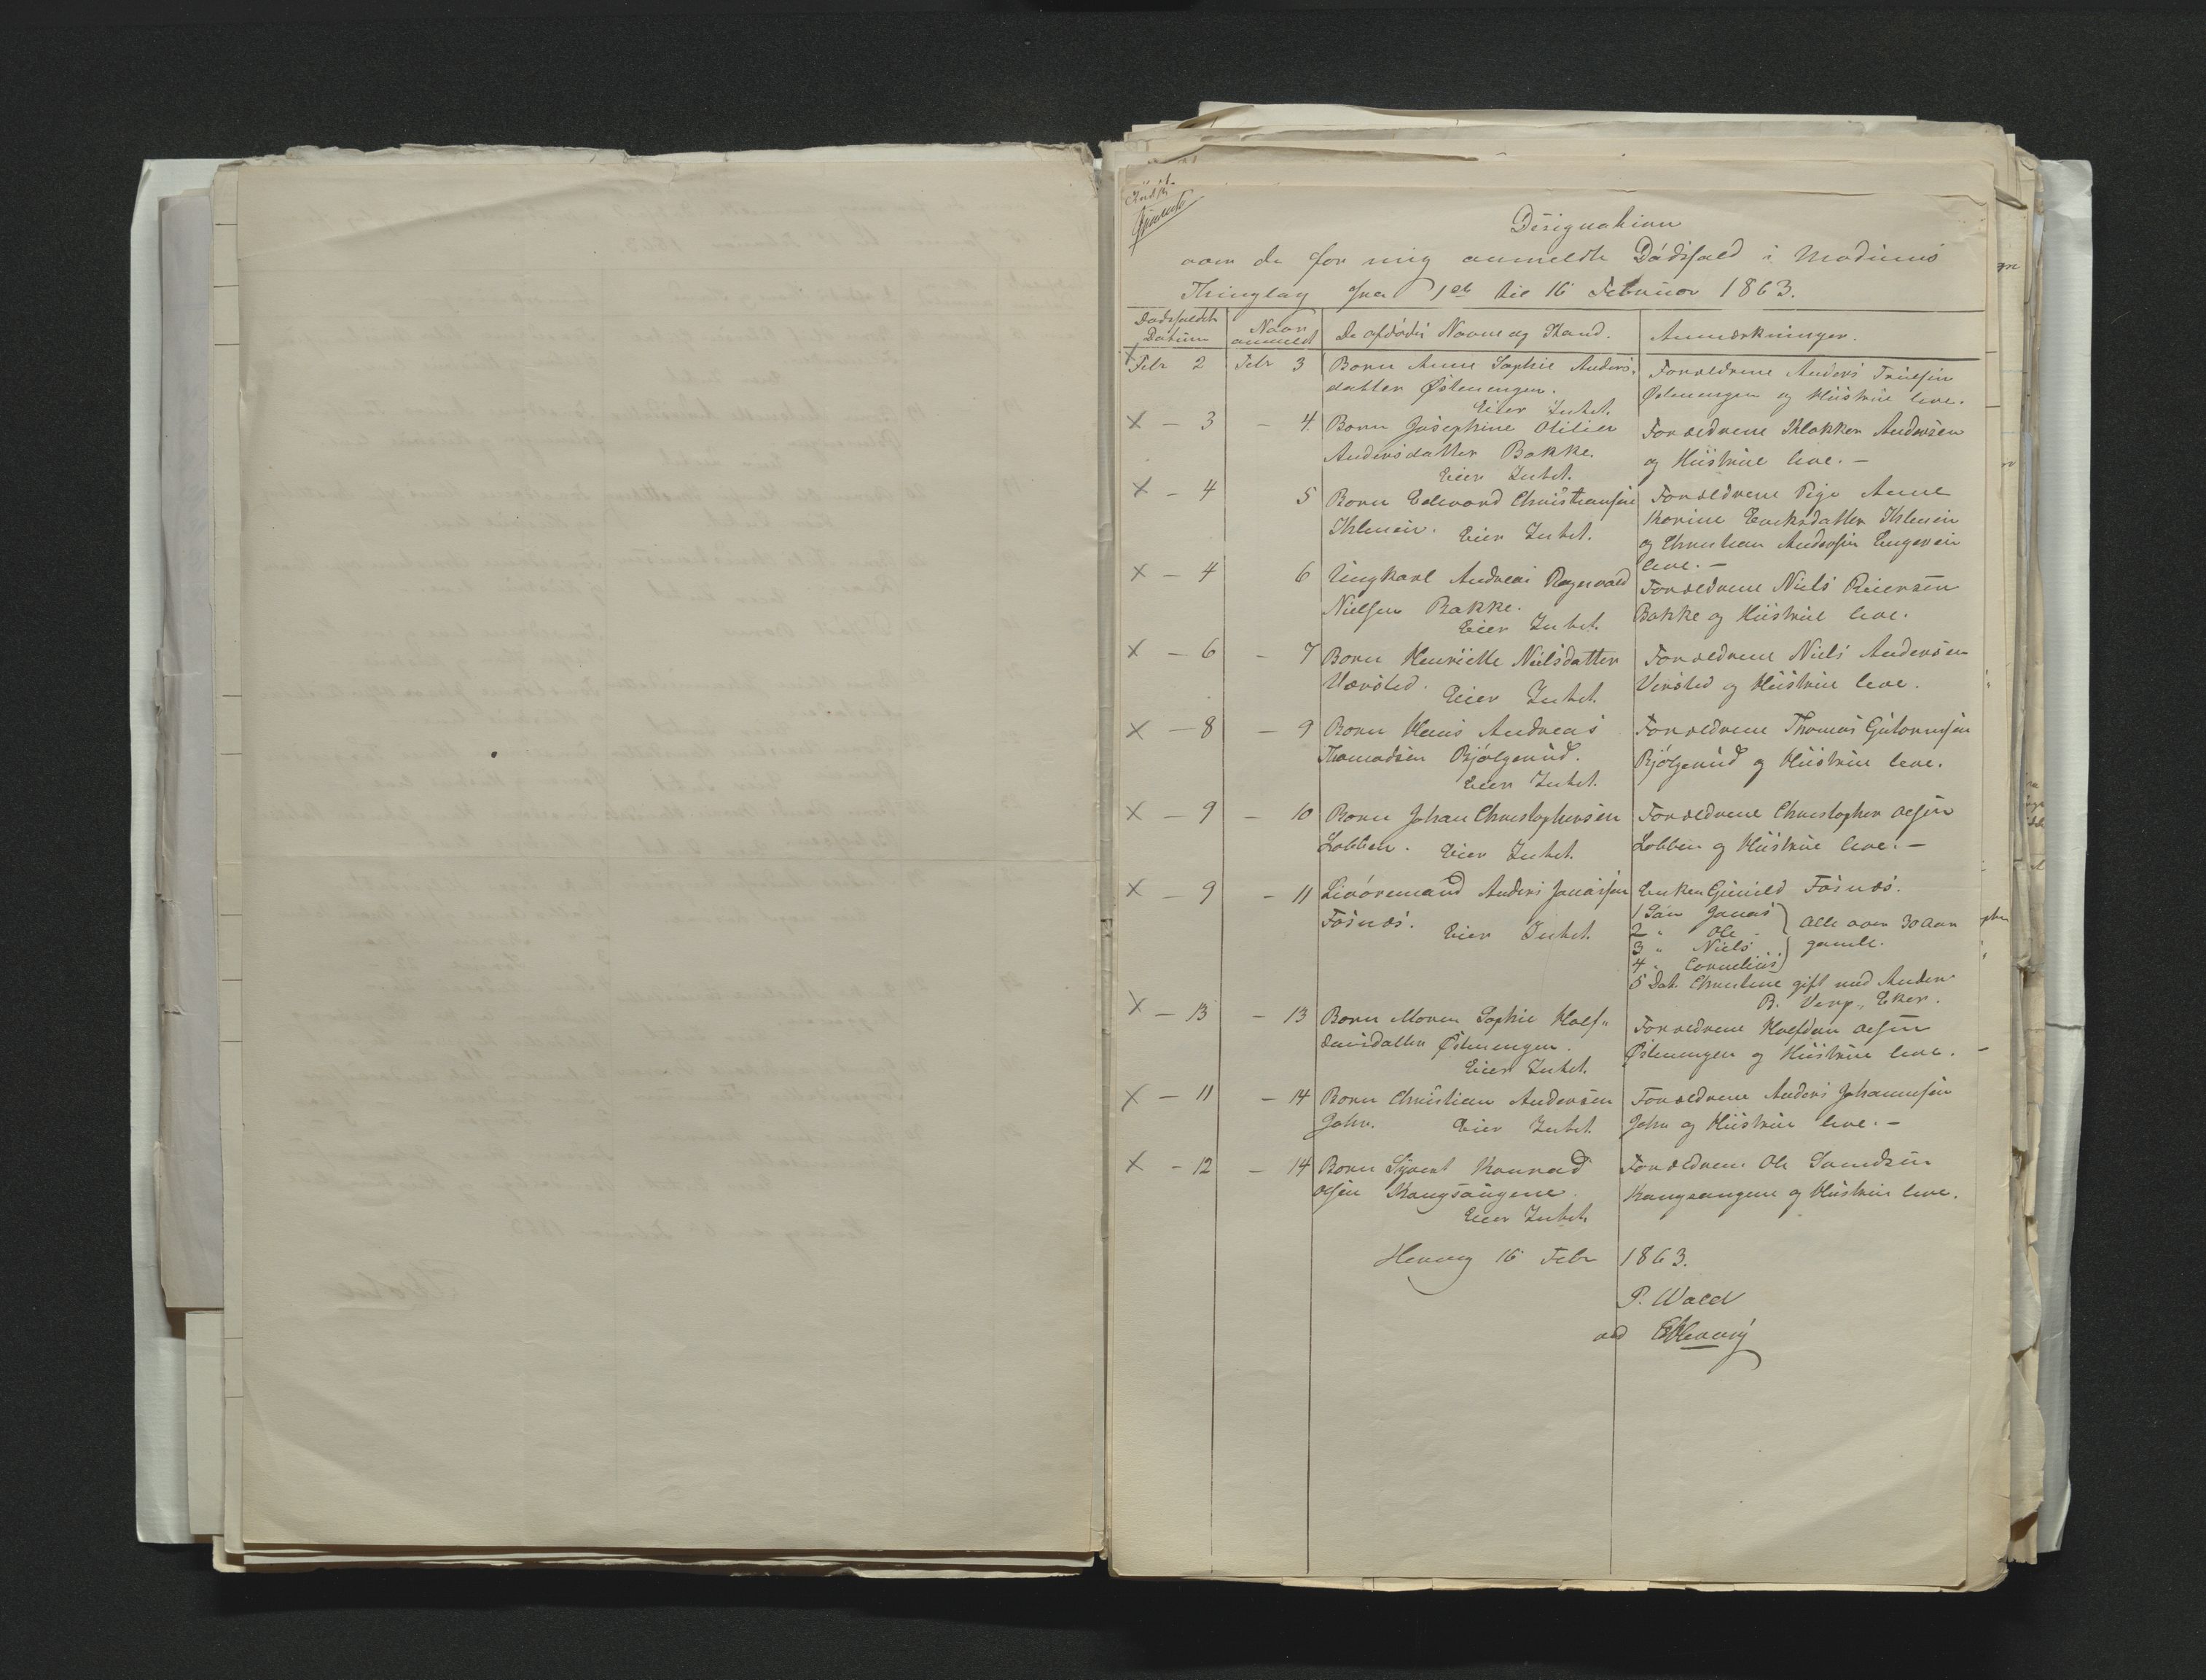 Designation
over de for mig anmeldte Dødsfald i Modums
Thinglag fra 1st til 16 Februar 1863.
Dødsfaldets Datum
Naar anmeldt
De afdødes Navne og Stand.
Anmærkninger.
Febr 2 Febr 3 Barn Anne Sophie Anders- Forældrene Anders Truelsen
datter Østenengen. Østenengen og Hustrue leve.
Eier Intet.
X - 3 - 4 Barn Josephine Otilier Forældrene Klokker Andersen
Andersdatter Bakke. og Hustrue leve. -
Eier Intet.
X - 4 5 Barn Edvard Christiansen Forældrene Pige Anne
Ihlenein. Eier Intet. Karine Eriksdatter Ihlenein
og Christian Andersen Engerein
leve. -
X - 4 6 Ungkarl Andreas Ragnvald Forældrene Niels Reiersen
Nielsen Bakke. Bakke og Hustrue leve.
Eier Intet.
X - 6 - 7 Barn Henriette Nielsdatter Forældrene Niels Andersen
Værsted. Eier Intet. Versted og Hustrue leve.
X - 8 - 9 Barn Hans Andreas Forældrene Thomas Gulormsen
Thomadsen Bjølgerud. Bjølgerud og Hustrue leve.
Eier Intet.
X - 9 - 10 Barn Johan Christophersen Forældrene Christopher Olsen
Lobben. Eier Intet. Lobben og Hustrue leve. -
X - 9 - 11 Livøremand Anders Jonassen Enken Gunild Fosnæs.
Fosnæs. Eier Intet.
1 Søn Jonas
2 " Ole - alle over 30 Aar
3 " Niels gamle.
4 " Cornelius
5 Dat. Christine gift med Anders
B. Verp., Eker.
X - 13 - 13 Barn Maren Sophie Half- Forældrene Halfdan Olsen
dansdatter Østenengen. Østenengen og Hustrue leve. -
Eier Intet.
X - 11 - 14 Barn Christian Andersen Forældrene Anders Johannesen
John. Eier Intet. John og Hustrue leve. -
X - 12 - 14 Barn Syvert Konrad Forældrene Ole Svendsen
Olsen Kongsangene. Kongsangene og Hustrue leve.
Eier Intet.
Hervig 16 Febr 1863.
P. Wald
ved Hervig